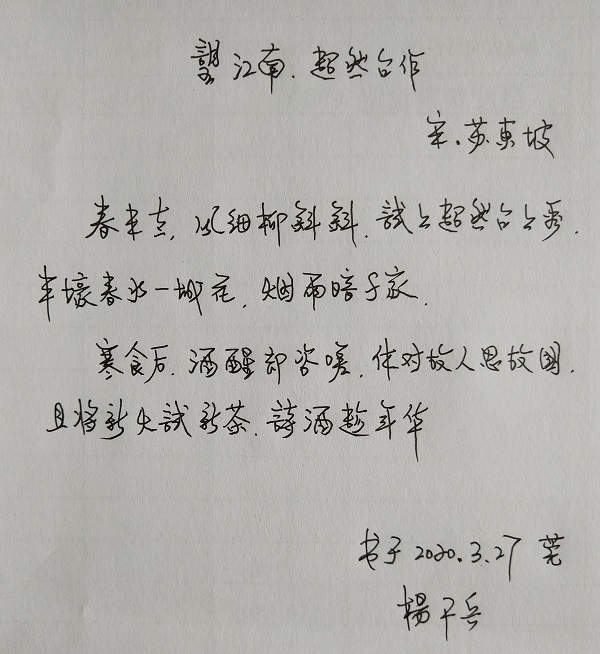 望江南.超然台作
宋.苏東坡
春未老,风细柳斜斜.試上超然台上看.
半壕春水一城花,烟雨暗千家.
寒食后,酒醒却咨嗟,休对故人思故國.
且将新火試新茶.詩酒趁年华
书于2020.3.27 莞
楊 兵